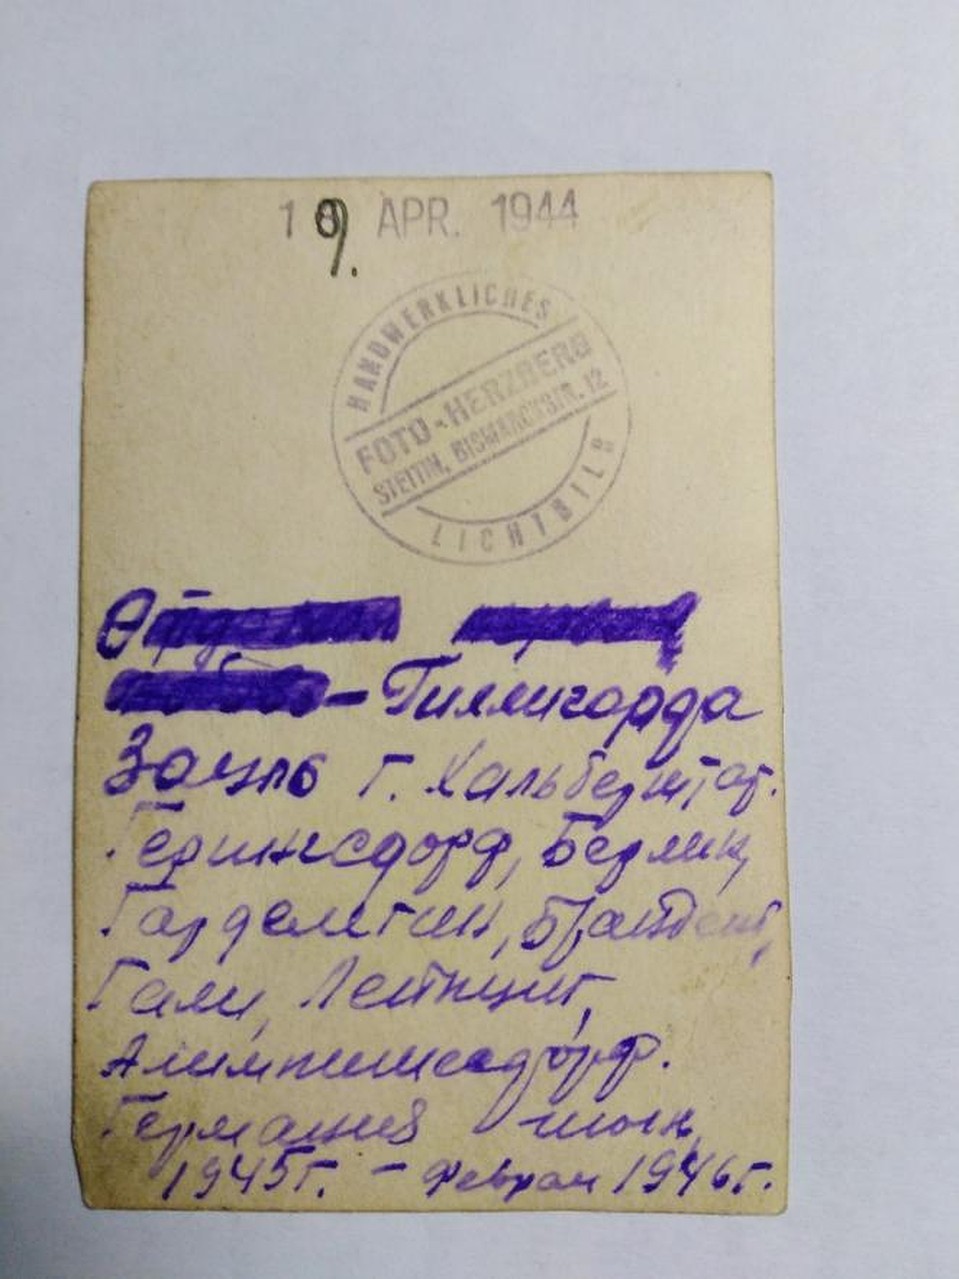 19. APR. 1944
HANDWERKLICHES
FOTO-HERZBERG
STETTIN, BISMARCKSTR. 12
LICHTBILD
– Гиллигорда
Заузль г. Хальберштат.
Герингсдорф, Берлин,
Гарделегин, Бранденб,
Гали, Лейпциг,
Германия июнь
1945г. – феврал 1946г.